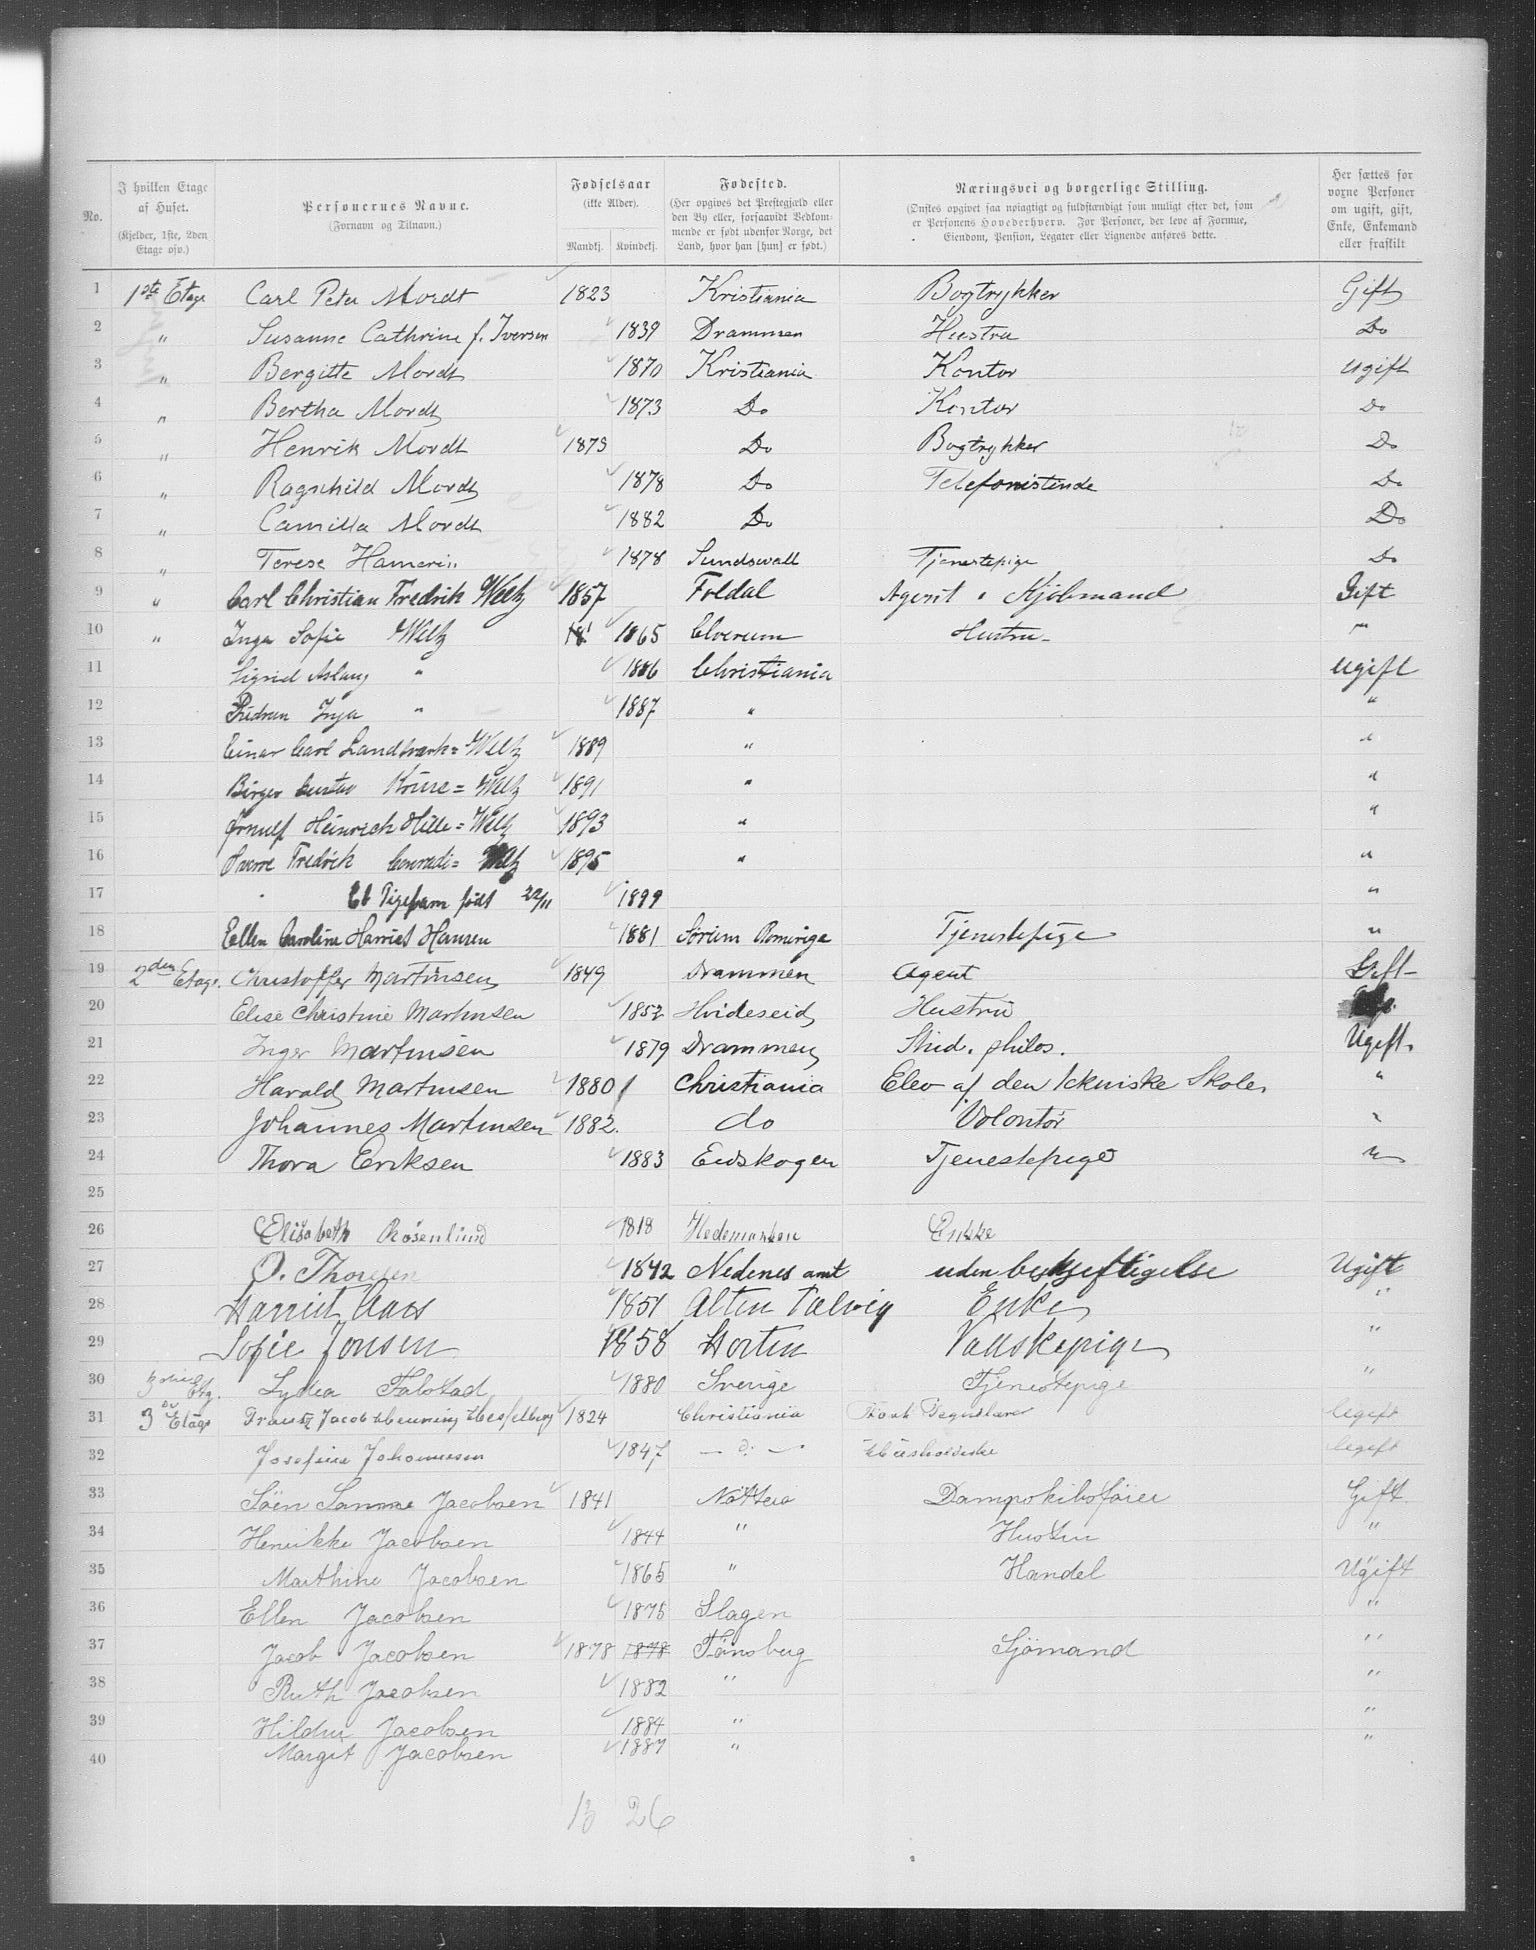 No.
I hvilken Etage af Huset.
(Kjelder, 1ste, 2den Etage osv.)
Personernes Navne.
(Fornavn og Tilnavn.)
Fødselsaar
(ikke Alder).
Mandkj. Kvindekj.
Fødested.
(Her opgives det Prestegjæld eller den By eller, forsaavidt Vedkommende er født udenfor Norge, det Land, hvor han [hun] er født.)
Næringsvei og borgerlige Stilling.
(Ønskes opgivet saa nøiagtigt og fuldstændigt som muligt efter det, som er Personens Hovederhverv. For Personer, der leve af Formue, Eiendom, Pension, Legater eller Lignende anføres dette.
Her sættes for voxne Personer om ugift, gift, Enke, Enkemand eller fraskilt
1 1ste Etage Carl Peter Mordt 1823 Kristiania Bogtrykker Gift
2 " Susanne Cathrine f. Iversen 1839 Drammen Hustru Do
3 " Bergitte Mordt 1870 Kristiania Kontor ugift
4 " Bertha Mordt 1873 Do Kontor Do
5 " Henrik Mordt 1873 Do Bogtrykker Do
6 " Ragnhild Mordt 1878 Do Telefonistinde Do
7 " Camilla Mordt 1882 Do Do
8 " Terese 1878 Sundswall Tjenestepige Do
9 " Carl Christian Fredrik Weltz 1857 Foldal Agent & Kjøbmand Gift
10 " Inga Sofie Weltz 1865 Elverum Hustru "
11 Sigrid Aslaug " 1886 Christiania Ugift
12 Inga " 1887 " "
13 Einar Carl = Weltz 1889 " "
14 Birger Gustav Kruse = Weltz 1891 " "
15 Ørnulf Heinrich Hille = Weltz 1893 " "
16 Sverre Fredrik Conradi = Weltz 1895 " "
17 Et Pigebarn født 22/11 1899 "
18 Ellen Caroline Harriet Hansen 1881 Sørum Romerige Tjenestepige "
19 2den Etage Christoffer Martinsen 1849 Drammen Agent Gift
20 Elise Christine Martinsen 1852 Hvideseid Hustru
21 Inger Martinsen 1879 Drammen Stud. philos. Ugift.
22 Harald Martinsen 1880 Christiania Elev af den tekniske Skole "
23 Johannes Martinsen 1882. do Volontør "
24 Thora Eriksen 1883 Eidskogen Tjenestepige "
25
26 Elisabeth Rosenlund 1818 Hedemarken Enke
27 O. Thoresen 1842 Nedenes amt uden beskjeftigelse Ugift
28 Harriet Aars 1851 Alten Talvig Enke "
29 Sofie Jonsen 1858 Horten Vaskepige "
30 3die Etg. Lydia Falstad 1880 Sverige Tjenestepige "
31 3die Etage Frantz Jacob Henning Hesselberg 1824 Christiania Ugift
32 Josefine Johannesen 1847 – do – Husholderske Ugift
33 Sören Jacobsen 1841 Nötterö Dampskibsförer Gift
34 Henrikke Jacobsen 1844 " Hustru "
35 Marthine Jacobsen 1865 " Handel Ugift
36 Ellen Jacobsen 1875 Slagen "
37 Jacob Jacobsen 1878 1878 Tönsberg Sjömand "
38 Ruth Jacobsen 1882 " "
39 Hildur Jacobsen 1884 " "
40 Margit Jacobsen 1887 " "
13 26